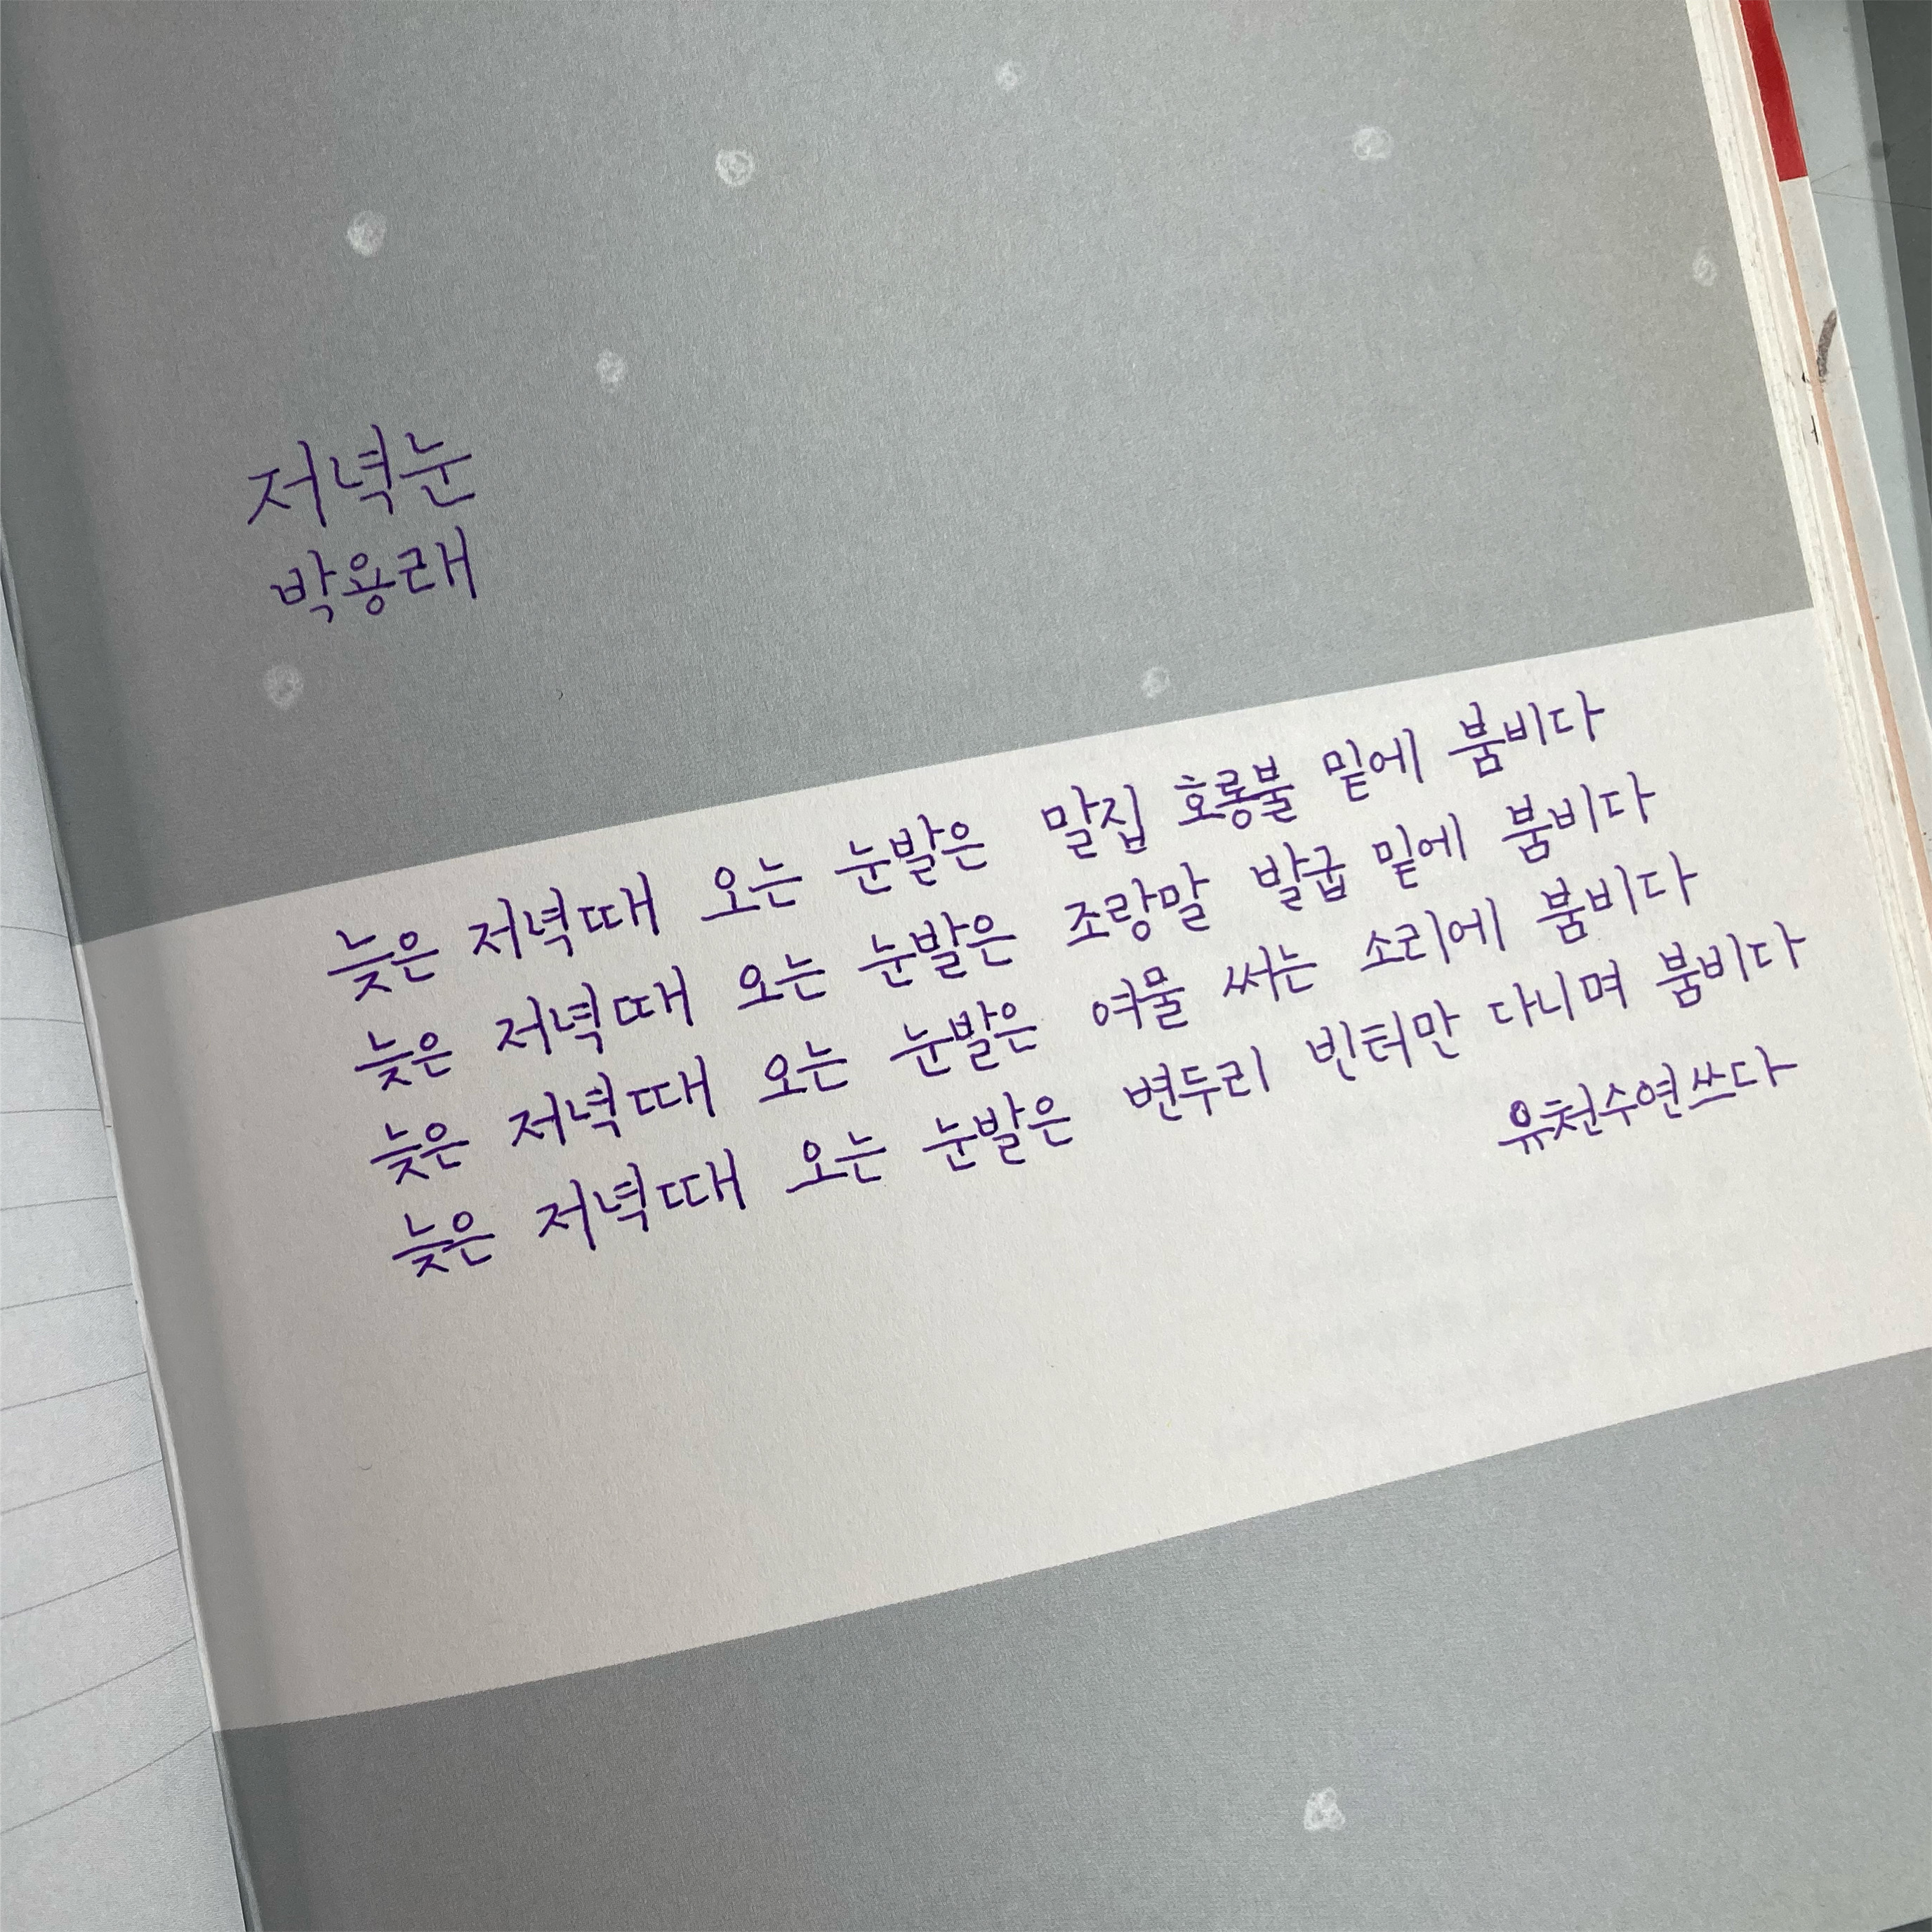 저녁눈
박용래
늦은 저녁때 오는 눈발은 말집 호롱불 밑에 붐비다
늦은 저녁때 오는 눈발은 조랑말 발굽 밑에 붐비다
늦은 저녁때 오는 눈발은 여물 써는 소리에 붐비다
늦은 저녁때 오는 눈발은 변두리 빈터만 다니며 붐비다
유천수연쓰다